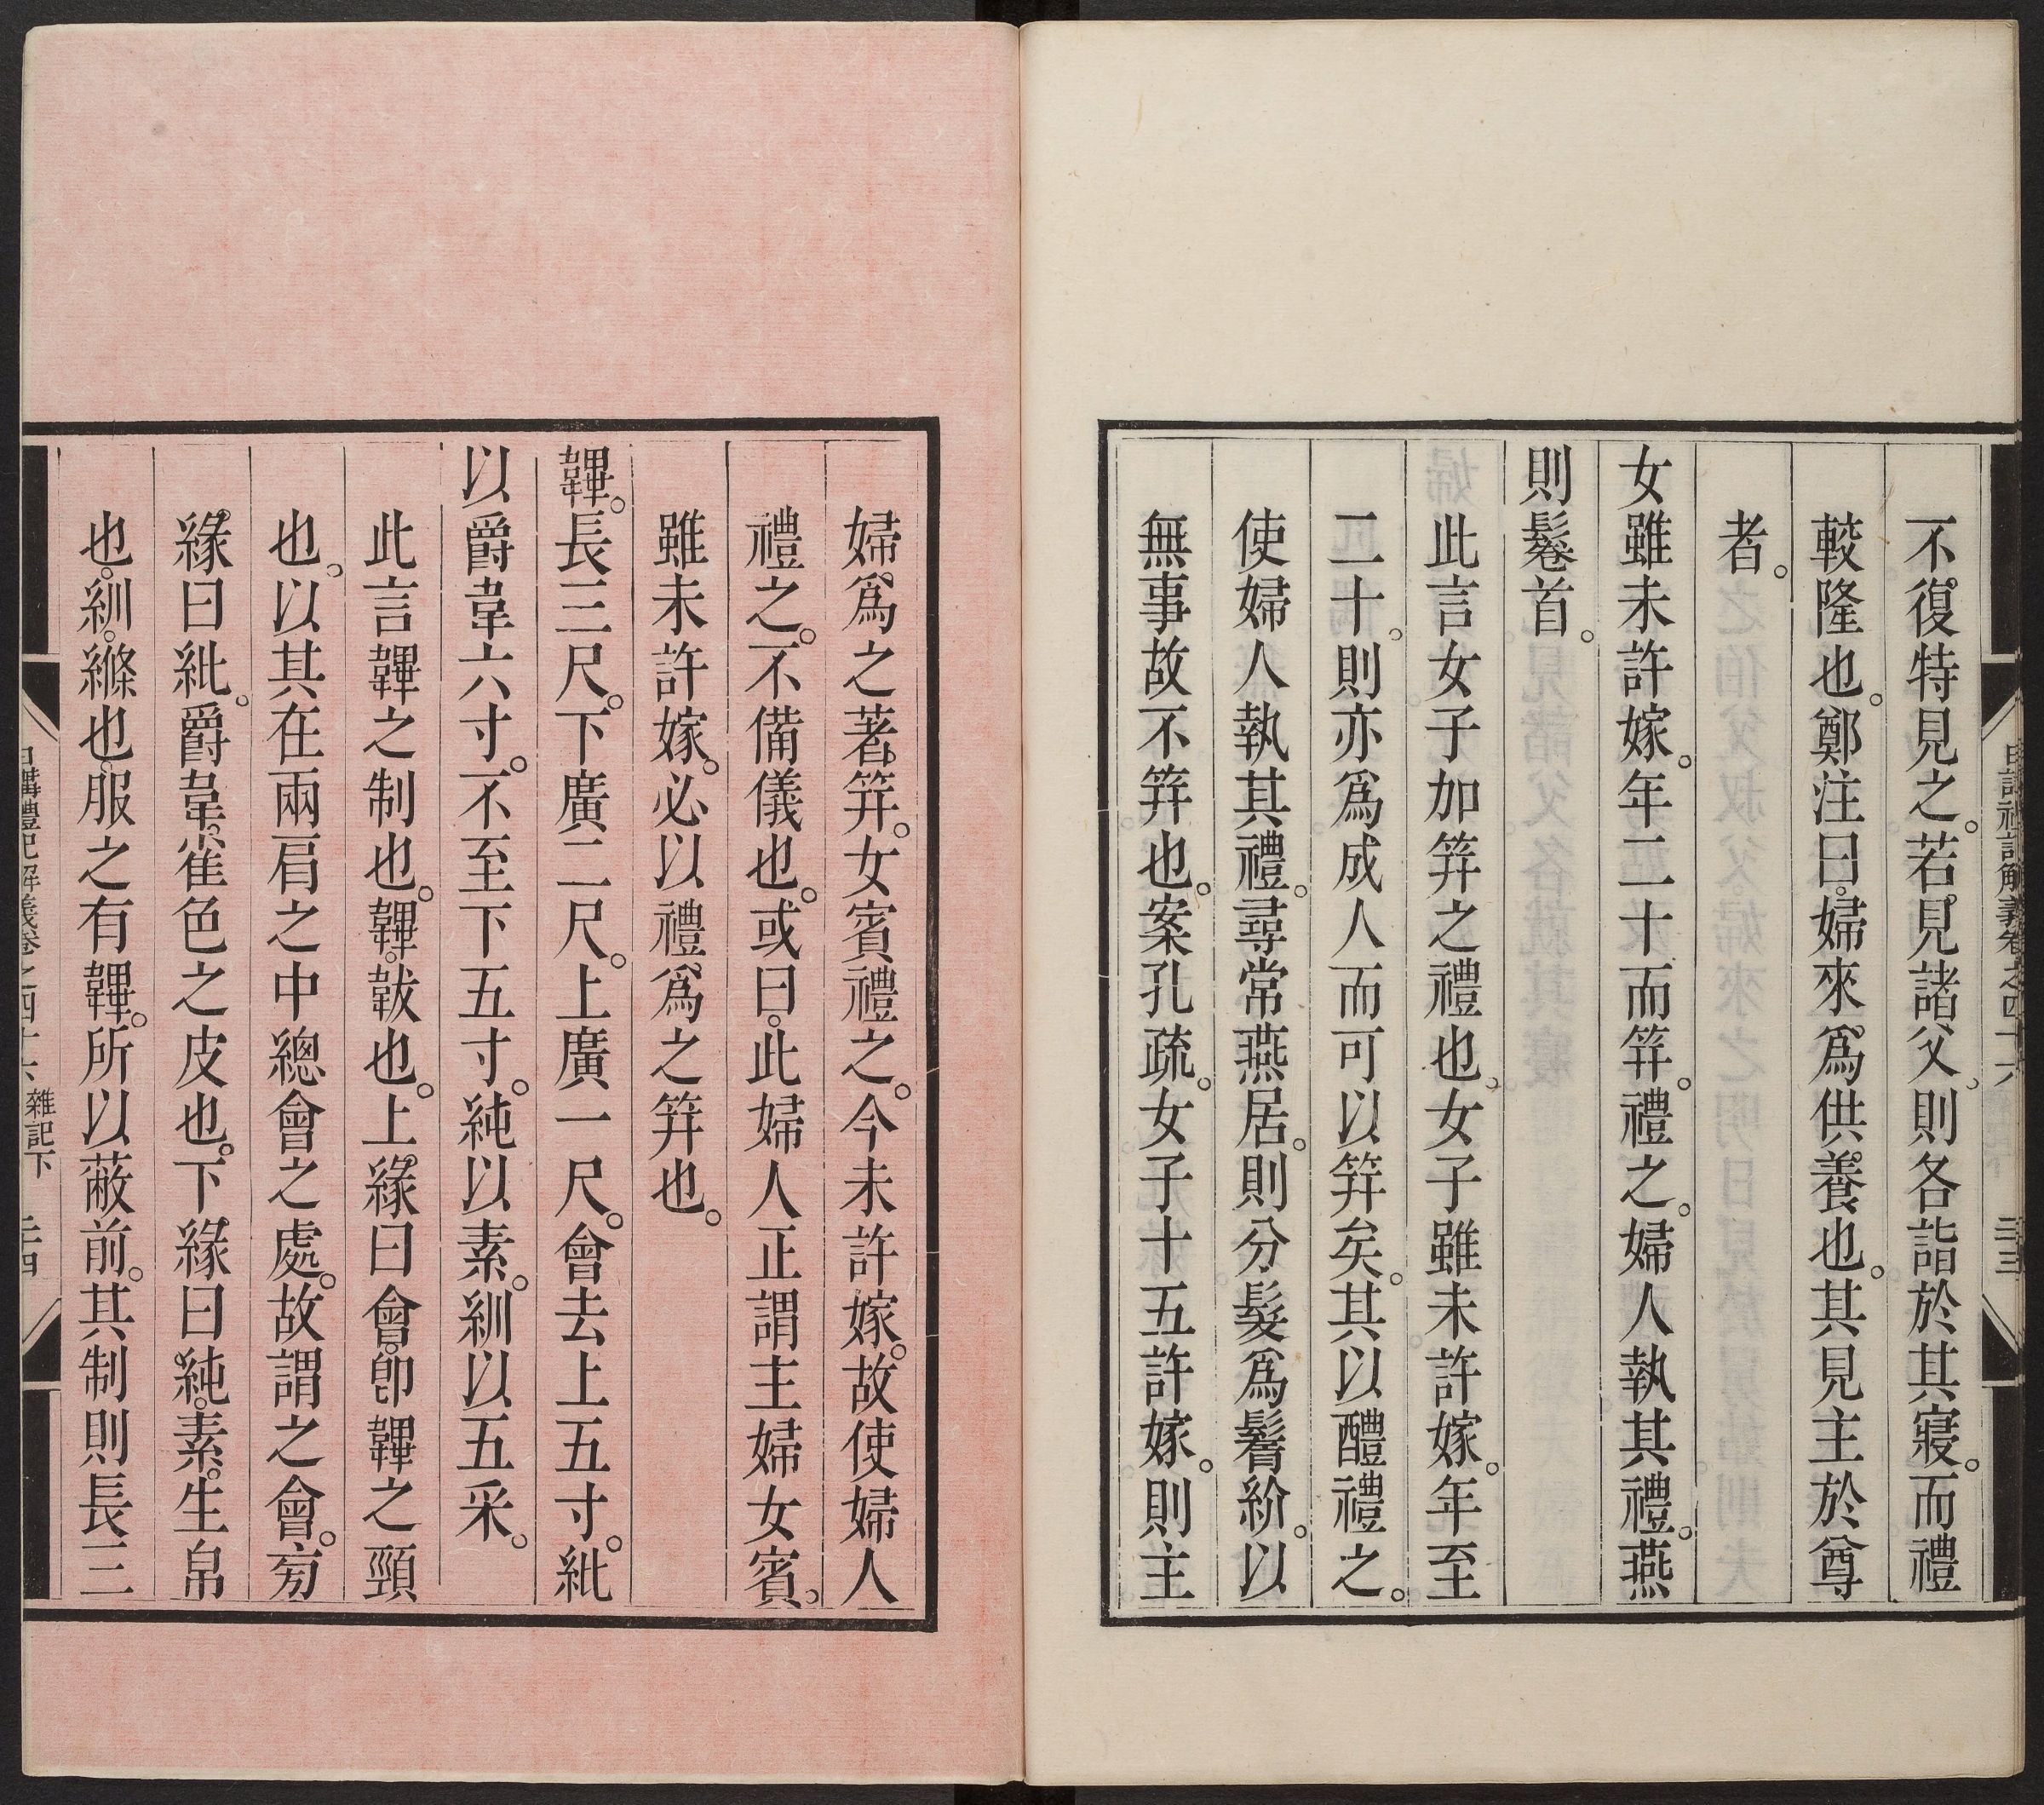 日講禮記解義卷之四十六
三十三
不復特見之。若見諸父、則各詣於其寢。而禮
較隆也。鄭注曰。婦來爲供養也。其見主於尊
者。
女雖未許嫁。年二十而笄。禮之。婦人執其禮。燕
則鬈首。
此言女子加笄之禮也、女子雖未許嫁。年至
二十。則亦爲成人而可以笄矣。其以醴禮之。
使婦人執其禮。尋常燕居。則分髮爲鬌紒。以
無事故不笄也。案孔疏。女子十五許嫁。則主
婦爲之著笄。女賓禮之。今未許嫁。故使婦人
禮之。不備儀也。或曰。此婦人正謂主婦女賓。
雖未許嫁。必以禮爲之笄也。
韠。長三尺。下廣二尺。上廣一尺。會去上五寸。紕
以爵韋六寸。不至下五寸。純以素。紃以五采。
此言韠之制也。韠。韍也。上緣曰會。卽韠之頸
也。以其在兩肩之中總會之處。故謂之會。旁
緣曰紕。爵韋。雀色之皮也。下緣曰純。素。生帛
也。紃。絛也。服之有韠。所以蔽前。其制則長三
日講禮記解義卷之四十六 雜記下 三十四